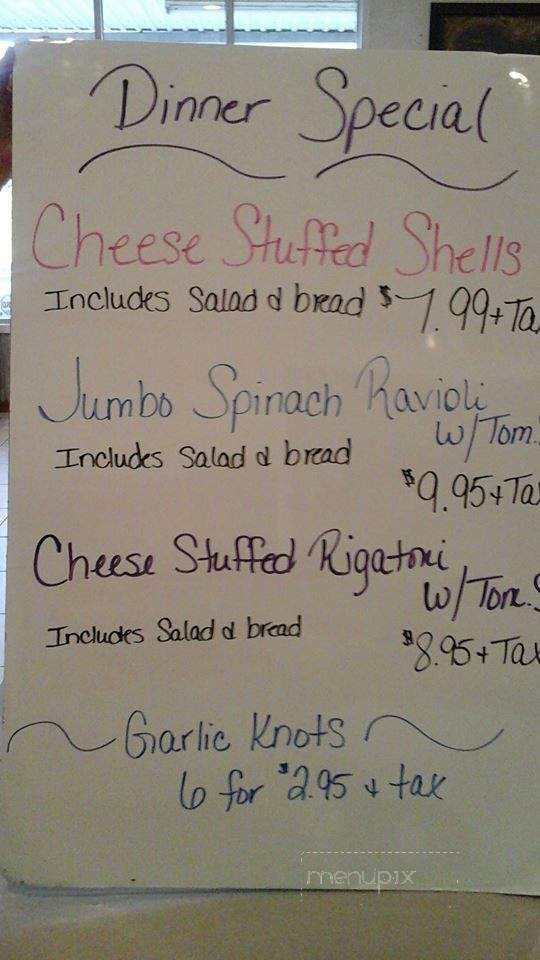 Dinner Special
Cheese Stuffed Shells
Includes Salad & bread $7.99 + Ta
Jumbo Spinach Ravioli
w/Tom.
Includes Salad & bread
$9.95 + Ta
Cheese Stuffed Rigatoni
w/Tom. S
Includes Salad & bread
$8.95 + Tax
Garlic Knots
6 for $2.95 + tax
menupix